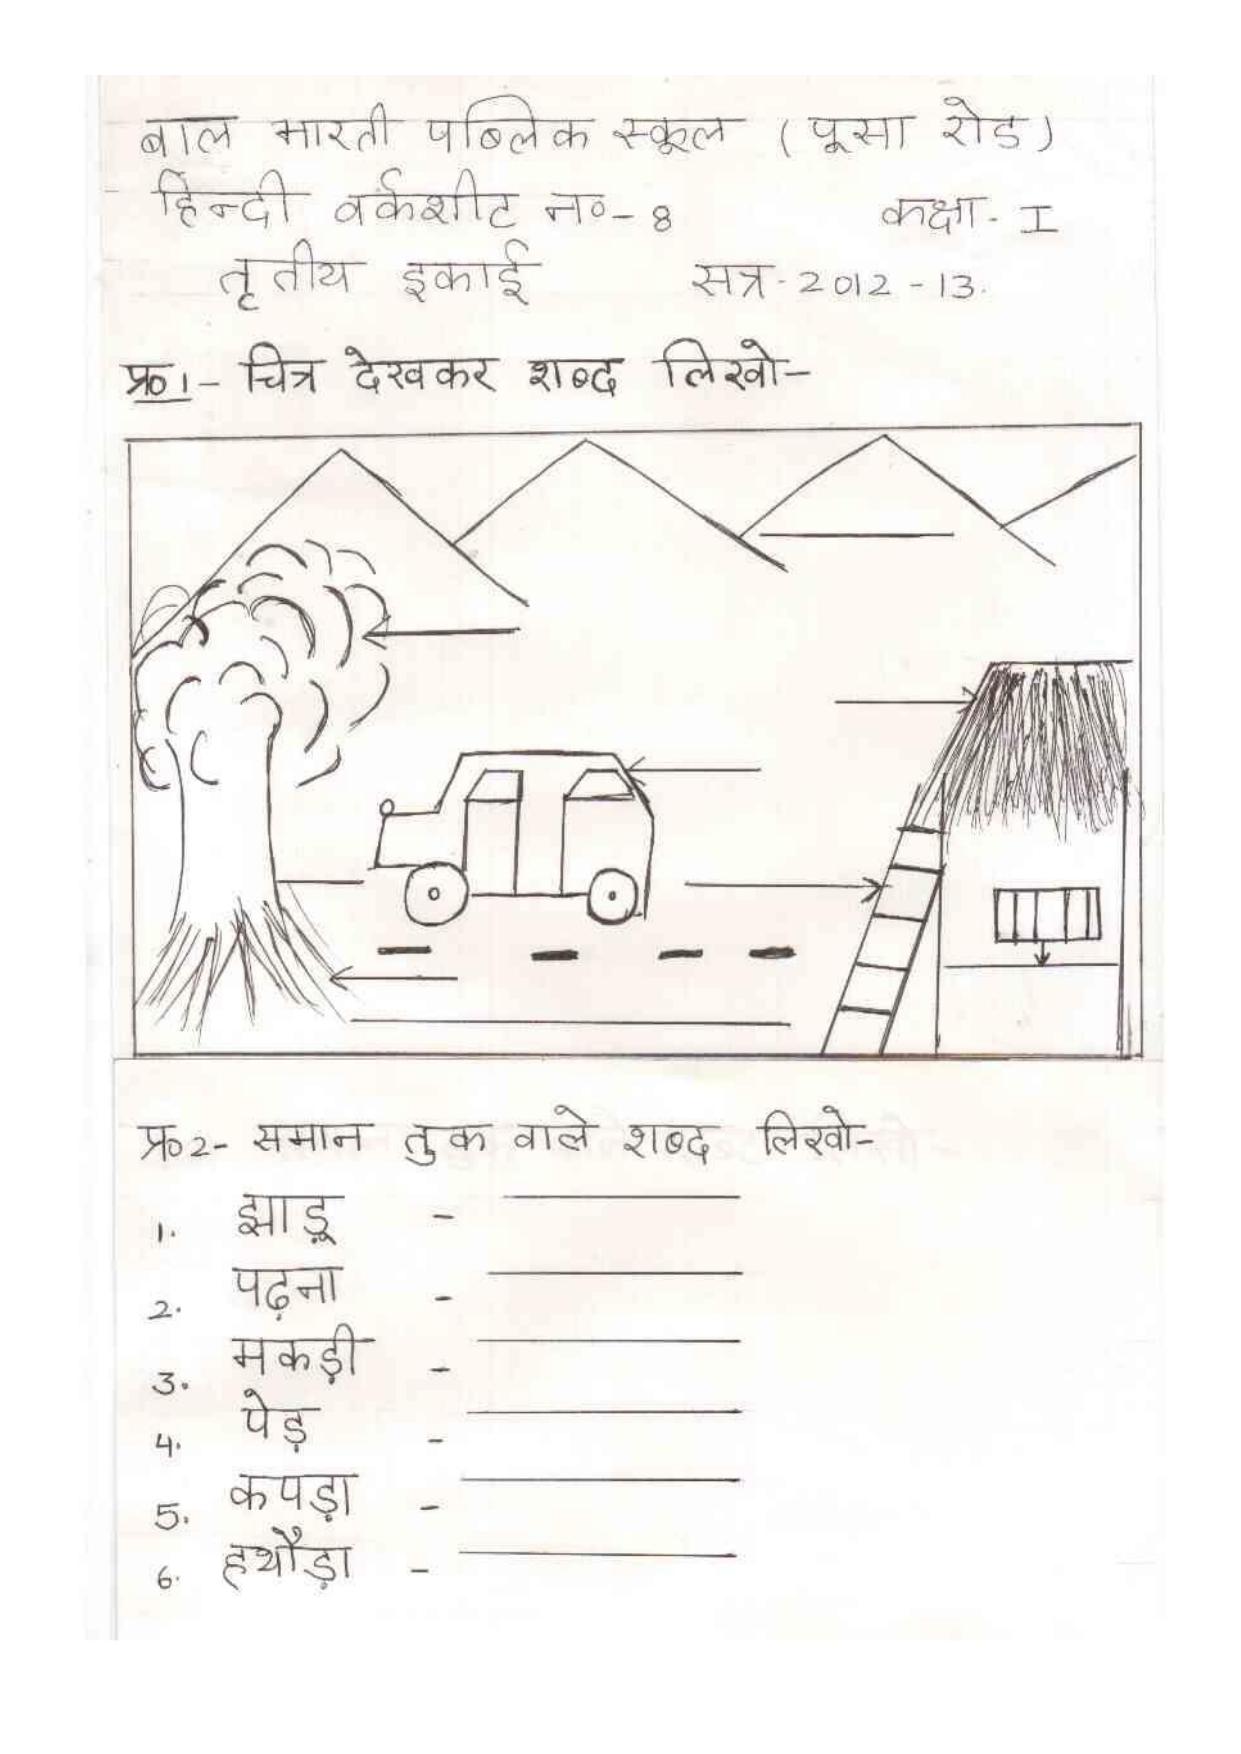 बाल भारती पब्लिक स्कूल (पूसा रोड)
हिन्दी वर्कशीट न०-8 कक्षा- I
तृतीय इकाई सत्र-2012-13.
प्र०1- चित्र देखकर शब्द लिखो-
प्र०2- समान तुक वाले शब्द लिखो-
1. झाड़ू -
2. पढ़ना -
3. मकड़ी -
4. पेड़ -
5. कपड़ा -
6. हथौड़ा -